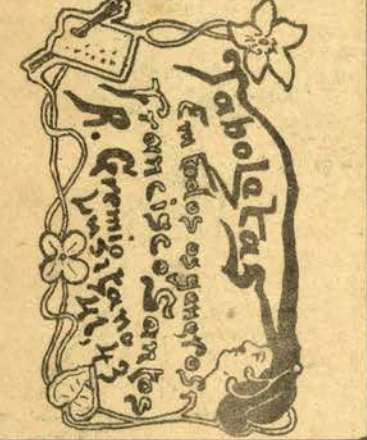 Taboletas
Em todos os generos
Francisco Santos
R. Gremio 43